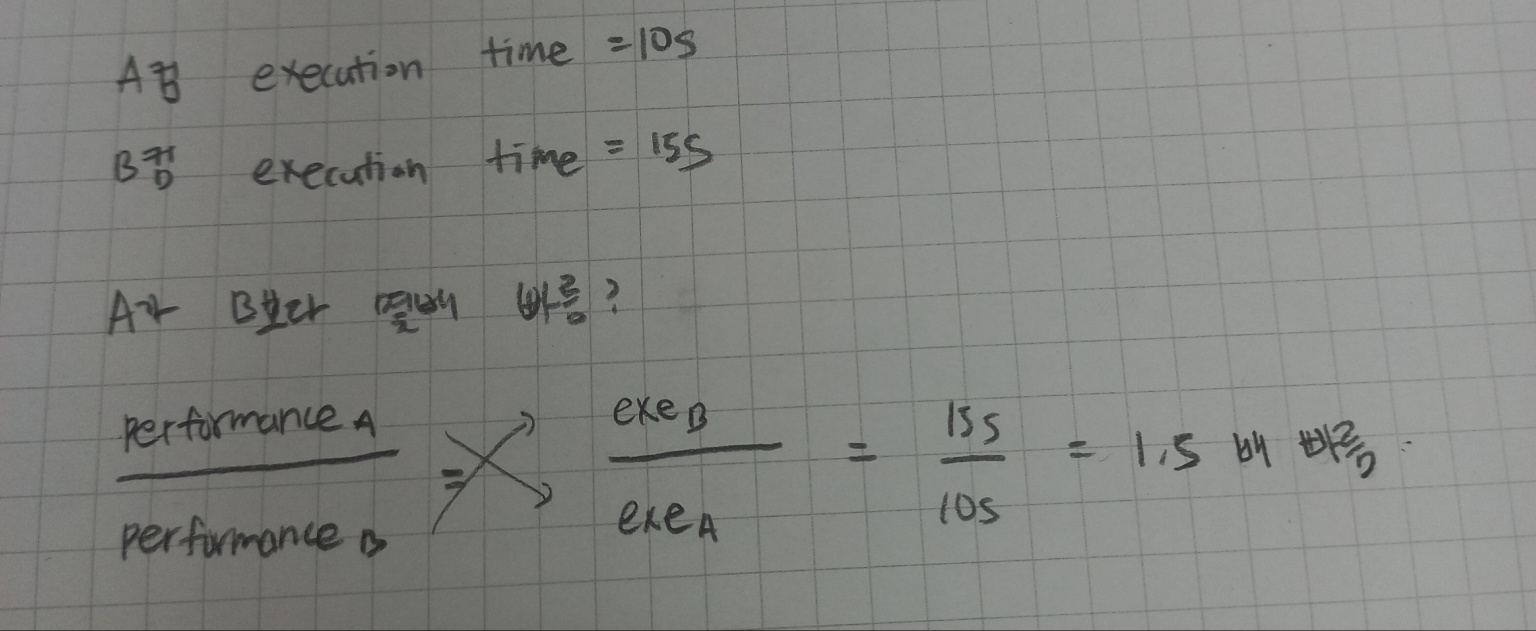 A컴 execution time = 10s
B컴 execution time = 15s
A가 B보다 몇배 빠름?
performance A / performance B = exe B / exe A = 15s / 10s = 1.5 배 빠름.